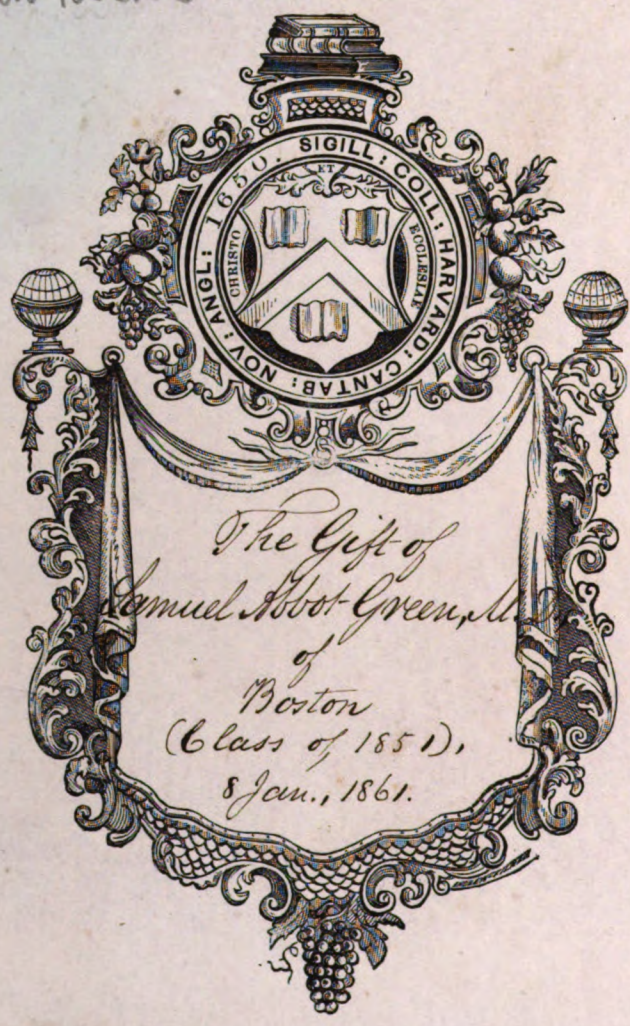 SIGILL: COLL: HARVARD: CANTAB: NOV: ANGL: 1650.
ET
CHRISTO
ECCLESIAE
The Gift of
Samuel Abbot Green, M.D.
of
Boston
(Class of 1851),
8 Jan., 1861.